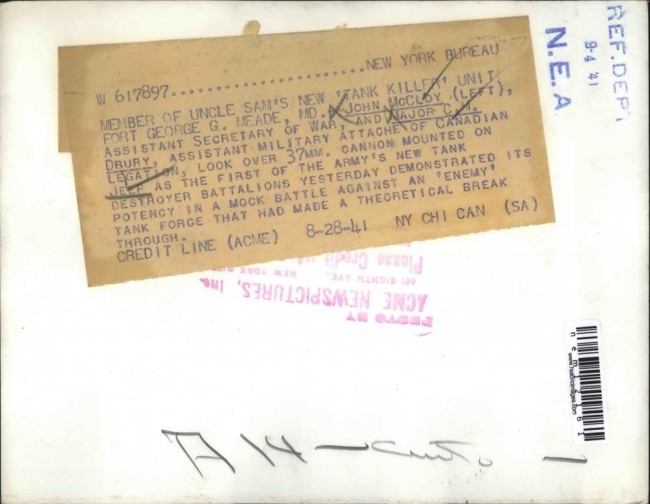 W 617897....................................NEW YORK BUREAU
MEMBER OF UNCLE SAM'S NEW 'TANK KILLER' UNIT
FORT GEORGE G. MEADE, MD. JOHN MCCLOY (LEFT),
ASSISTANT SECRETARY OF WAR, AND MAJOR C.
DRURY, ASSISTANT MILITARY ATTACHE OF CANADIAN
LEGATION, LOOK OVER 37MM. CANNON MOUNTED ON
JEEP AS THE FIRST OF THE ARMY'S NEW TANK
DESTROYER BATTALIONS YESTERDAY DEMONSTRATED ITS
POTENCY IN A MOCK BATTLE AGAINST AN 'ENEMY'
TANK FORCE THAT HAD MADE A THEORETICAL BREAK
THROUGH.
CREDIT LINE (ACME) 8-28-41 NY CHI CAN (SA)
REF. DEPT
9-4 41
N.E.A
PHOTO BY
ACME NEWSPICTURES, Inc.
461 EIGHTH AVE., NEW YORK
Please Credit
A 14